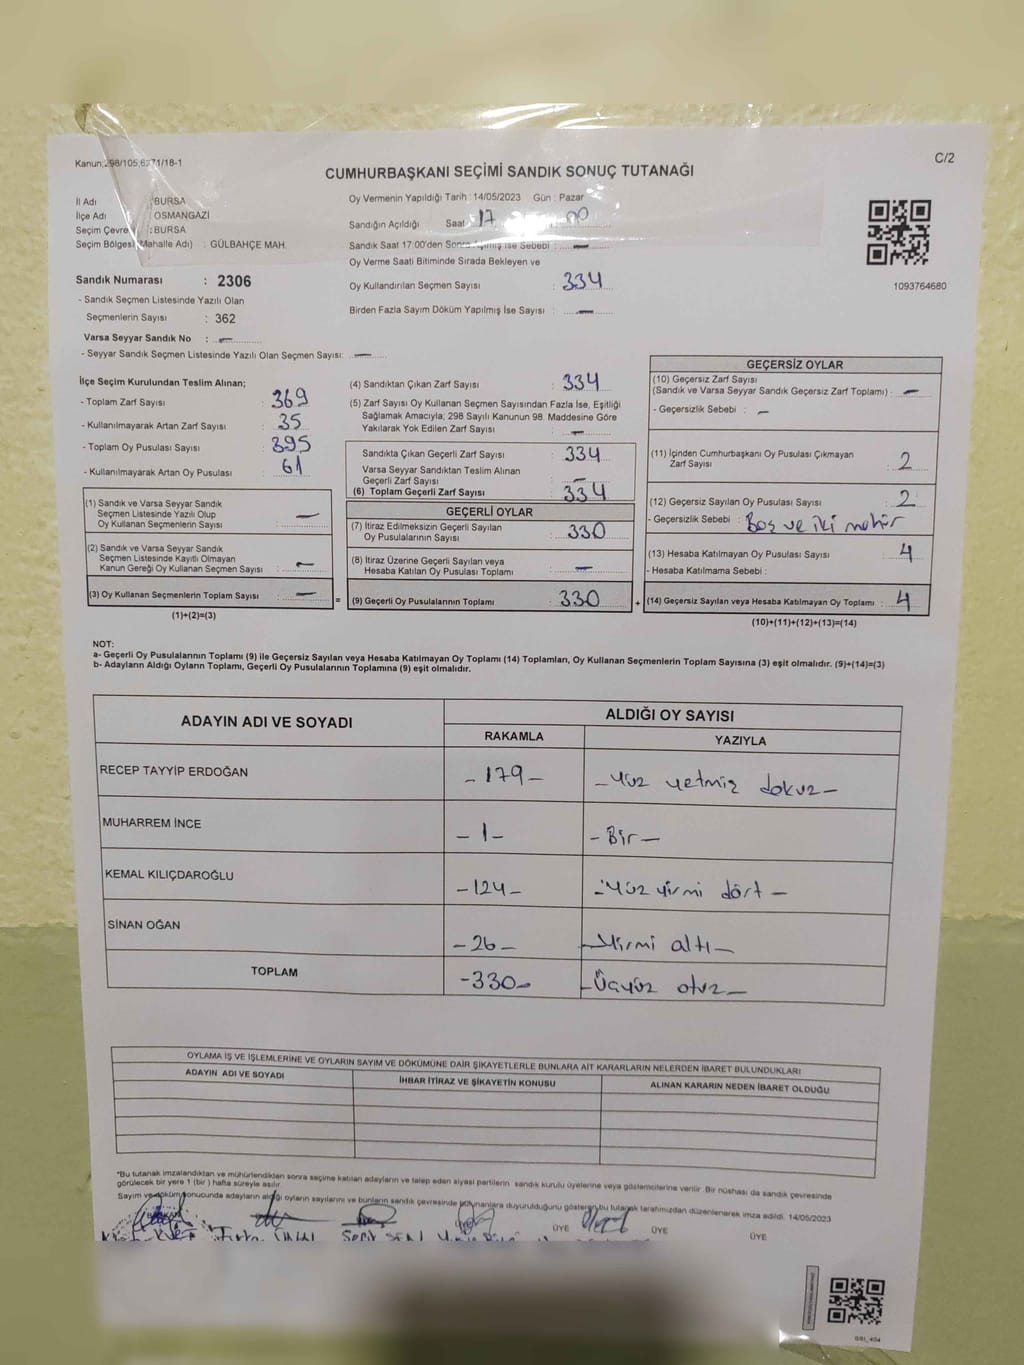 Kanun;298/105;6271/18-1
C/2
CUMHURBAŞKANI SEÇİMİ SANDIK SONUÇ TUTANAĞI
İl Adı : BURSA
İlçe Adı : OSMANGAZİ
Seçim Çevresi : BURSA
Seçim Bölgesi (Mahalle Adı) : GÜLBAHÇE MAH.
Oy Vermenin Yapıldığı Tarih : 14/05/2023 Gün : Pazar
Sandığın Açıldığı Saat : 17 : 00
Sandık Saat 17:00'den Sonra Açılmış İse Sebebi : —
Oy Verme Saati Bitiminde Sırada Bekleyen ve
Oy Kullandırılan Seçmen Sayısı : 334
Birden Fazla Sayım Döküm Yapılmış İse Sayısı : —
1093764680
Sandık Numarası : 2306
- Sandık Seçmen Listesinde Yazılı Olan
Seçmenlerin Sayısı : 362
Varsa Seyyar Sandık No : —
- Seyyar Sandık Seçmen Listesinde Yazılı Olan Seçmen Sayısı: —
İlçe Seçim Kurulundan Teslim Alınan;
- Toplam Zarf Sayısı : 369
- Kullanılmayarak Artan Zarf Sayısı : 35
- Toplam Oy Pusulası Sayısı : 395
- Kullanılmayarak Artan Oy Pusulası : 61
(1) Sandık ve Varsa Seyyar Sandık
Seçmen Listesinde Yazılı Olup
Oy Kullanan Seçmenlerin Sayısı : —
(2) Sandık ve Varsa Seyyar Sandık
Seçmen Listesinde Kayıtlı Olmayan
Kanun Gereği Oy Kullanan Seçmen Sayısı : —
(3) Oy Kullanan Seçmenlerin Toplam Sayısı : —
(1)+(2)=(3)
(4) Sandıktan Çıkan Zarf Sayısı : 334
(5) Zarf Sayısı Oy Kullanan Seçmen Sayısından Fazla İse, Eşitliği
Sağlamak Amacıyla; 298 Sayılı Kanunun 98. Maddesine Göre
Yakılarak Yok Edilen Zarf Sayısı : —
Sandıkta Çıkan Geçerli Zarf Sayısı : 334
Varsa Seyyar Sandıktan Teslim Alınan
Geçerli Zarf Sayısı : —
(6) Toplam Geçerli Zarf Sayısı : 334
GEÇERLİ OYLAR
(7) İtiraz Edilmeksizin Geçerli Sayılan
Oy Pusulalarının Sayısı : 330
(8) İtiraz Üzerine Geçerli Sayılan veya
Hesaba Katılan Oy Pusulası Toplamı : —
= (9) Geçerli Oy Pusulalarının Toplamı : 330
GEÇERSİZ OYLAR
(10) Geçersiz Zarf Sayısı
(Sandık ve Varsa Seyyar Sandık Geçersiz Zarf Toplamı) : —
- Geçersizlik Sebebi : —
(11) İçinden Cumhurbaşkanı Oy Pusulası Çıkmayan
Zarf Sayısı : 2
(12) Geçersiz Sayılan Oy Pusulası Sayısı : 2
- Geçersizlik Sebebi : Boş ve iki mühür
(13) Hesaba Katılmayan Oy Pusulası Sayısı : 4
- Hesaba Katılmama Sebebi :
+ (14) Geçersiz Sayılan veya Hesaba Katılmayan Oy Toplamı : 4
(10)+(11)+(12)+(13)=(14)
NOT:
a- Geçerli Oy Pusulalarının Toplamı (9) ile Geçersiz Sayılan veya Hesaba Katılmayan Oy Toplamı (14) Toplamları, Oy Kullanan Seçmenlerin Toplam Sayısına (3) eşit olmalıdır. (9)+(14)=(3)
b- Adayların Aldığı Oyların Toplamı, Geçerli Oy Pusulalarının Toplamına (9) eşit olmalıdır.
ADAYIN ADI VE SOYADI ALDIĞI OY SAYISI
RAKAMLA YAZIYLA
RECEP TAYYİP ERDOĞAN -179- -Yüz yetmiş dokuz-
MUHARREM İNCE -1- -Bir-
KEMAL KILIÇDAROĞLU -124- -Yüz yirmi dört-
SİNAN OĞAN -26- -Yirmi altı-
TOPLAM -330- -Üçyüz otuz-
OYLAMA İŞ VE İŞLEMLERİNE VE OYLARIN SAYIM VE DÖKÜMÜNE DAİR ŞİKAYETLERLE BUNLARA AİT KARARLARIN NELERDEN İBARET BULUNDUKLARI
ADAYIN ADI VE SOYADI İHBAR İTİRAZ VE ŞİKAYETİN KONUSU ALINAN KARARIN NEDEN İBARET OLDUĞU
*Bu tutanak imzalandıktan ve mühürlendikten sonra seçime katılan adayların ve talep eden siyasi partilerin sandık kurulu üyelerine veya gösterilerine verilir. Bir nüshası da sandık çevresinde
görülecek bir yere 1 (bir) hafta süreyle asılır.
Sayım ve döküm sonucunda adayların aldığı oyların sayılarını ve bunların sandık çevresinde bulunanlara duyurulduğunu gösteren bu tutanak tarafımızdan düzenlenerek imza edildi. 14/05/2023
ÜYE ÜYE ÜYE